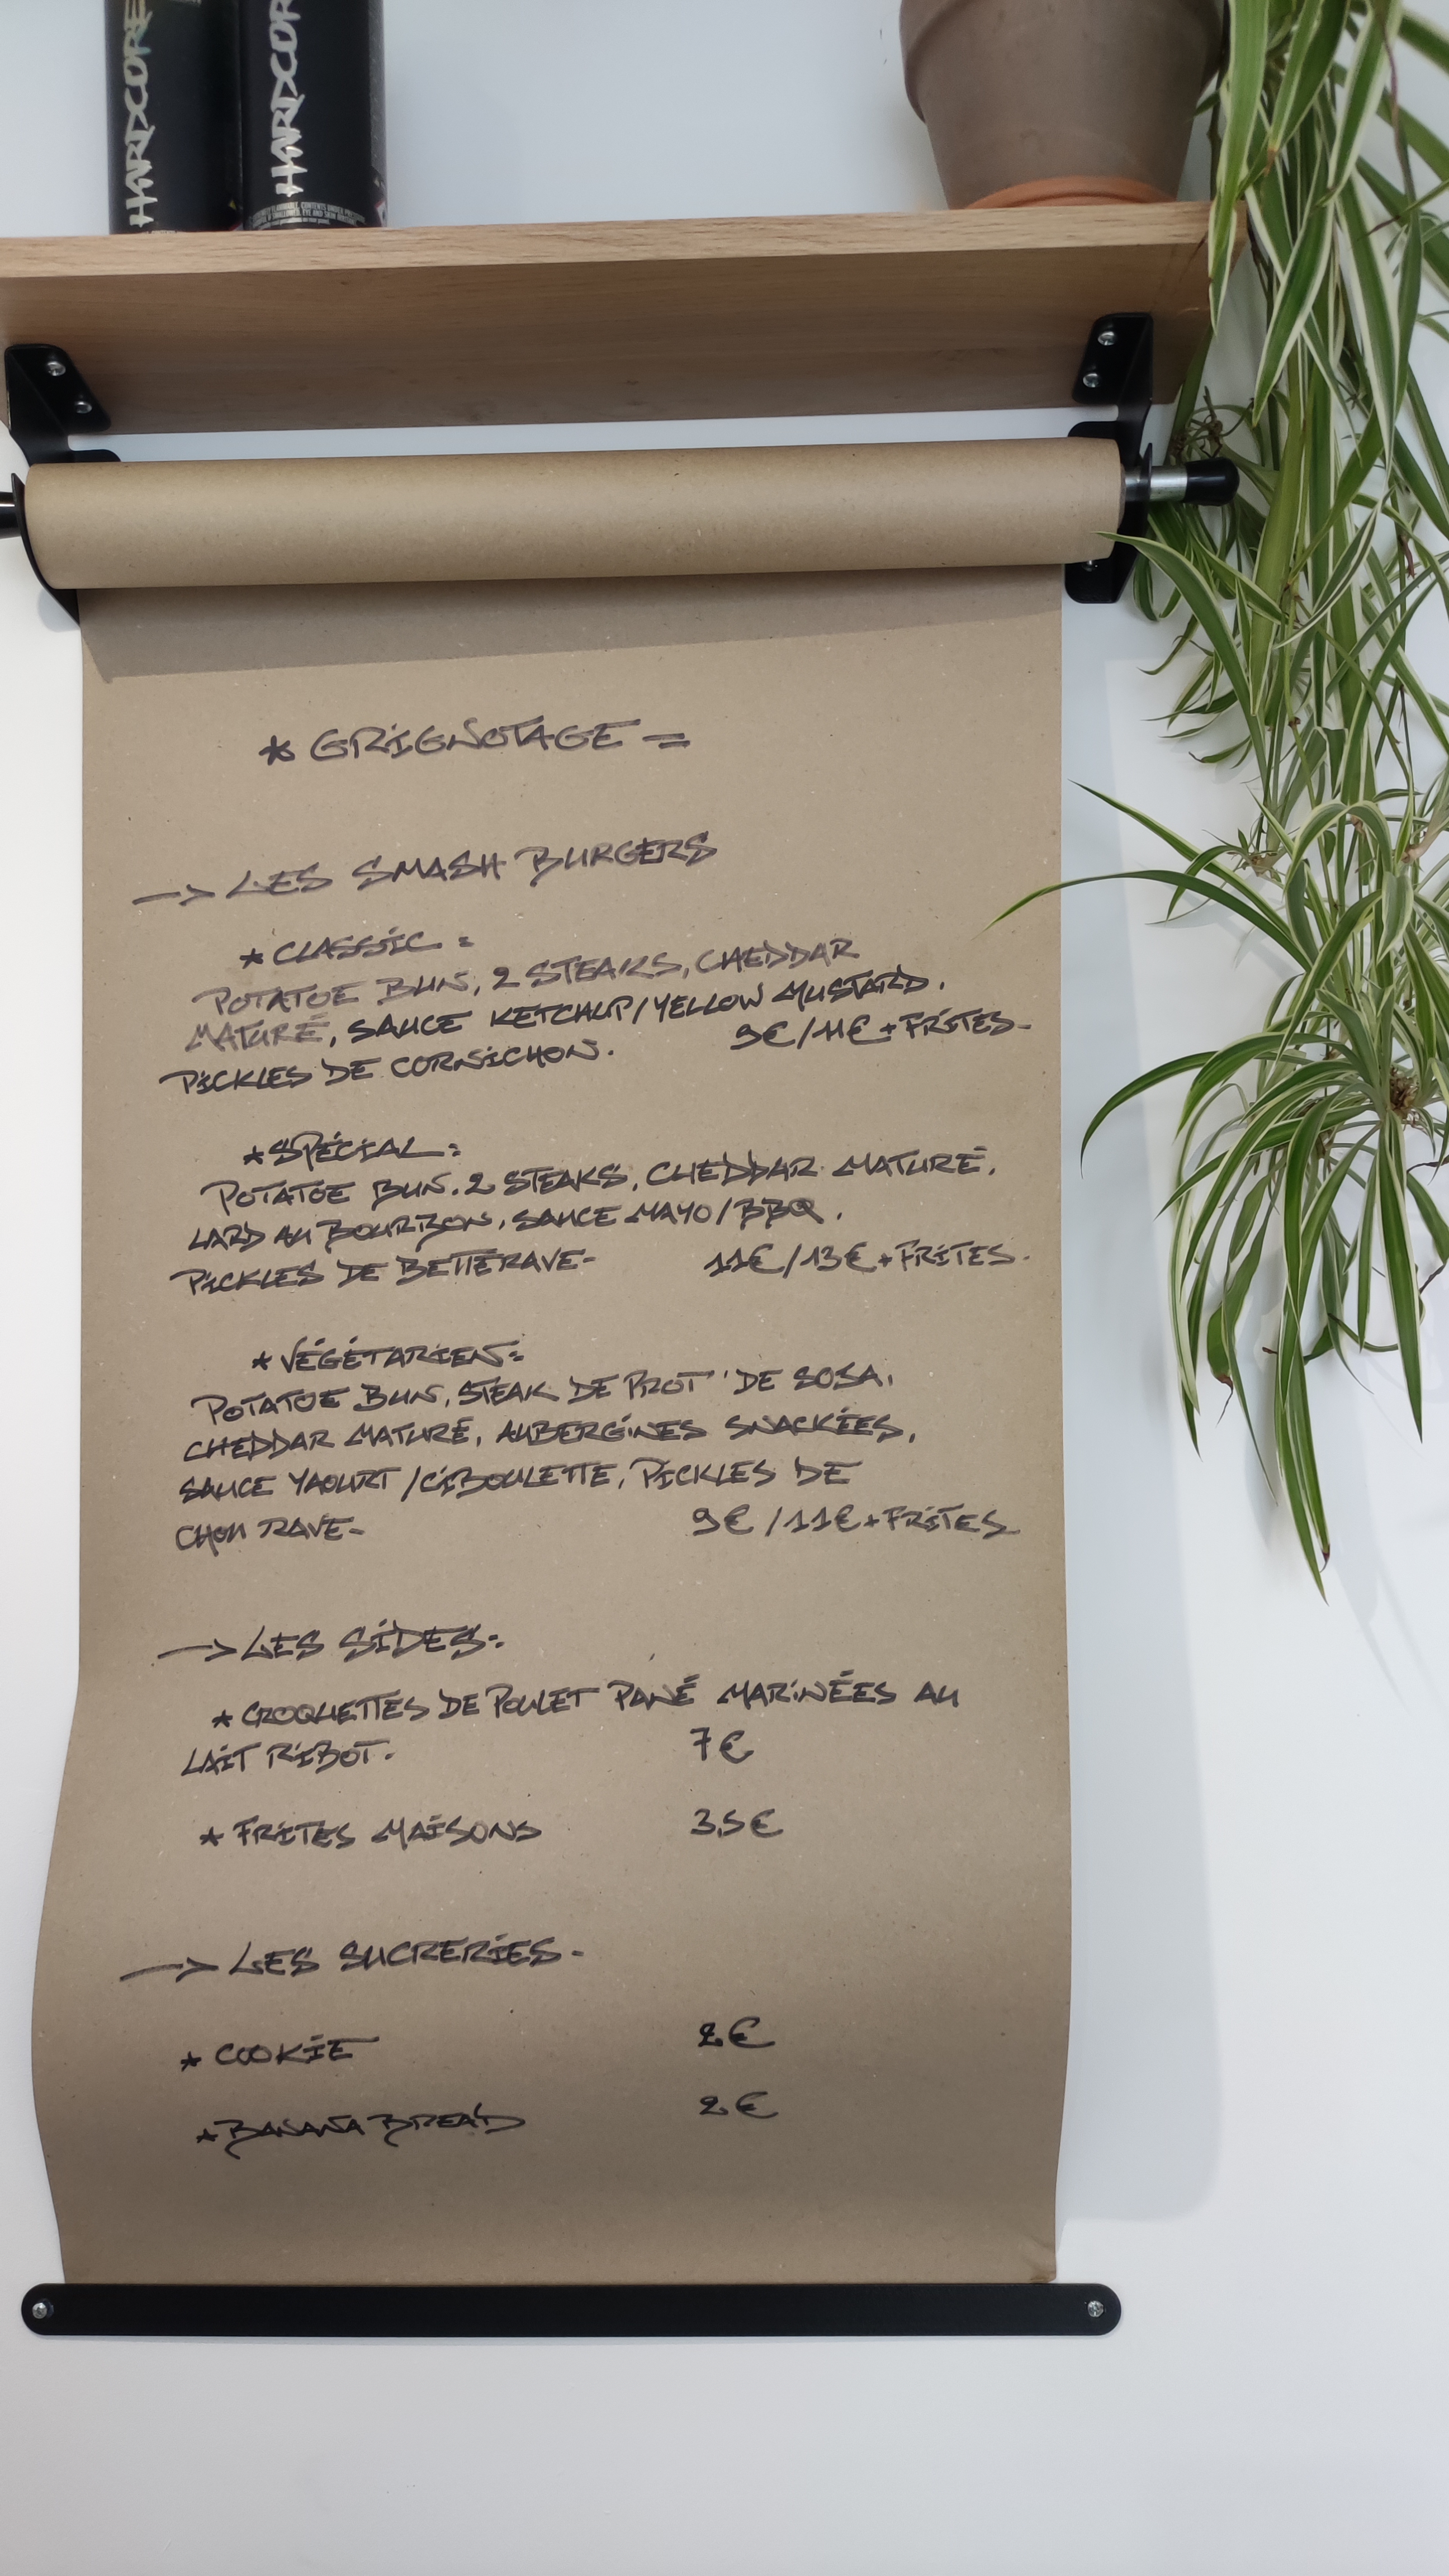 HARDCORE
HARDCORE
* GRIGNOTAGE =
-> LES SMASH BURGERS
* CLASSIC :
POTATOE BUN, 2 STEAKS, CHEDDAR
MATURÉ, SAUCE KETCHUP/YELLOW MUSTARD.
PICKLES DE CORNICHON. 9€/11€ + FRITES-
* SPÉCIAL :
POTATOE BUN. 2 STEAKS, CHEDDAR MATURÉ,
LARD AU BOURBON, SAUCE MAYO/BBQ,
PICKLES DE BETTERAVE- 11€/13€ + FRITES.
* VÉGÉTARIEN :
POTATOE BUN, STEAK DE PROT' DE SOSA,
CHEDDAR MATURÉ, AUBERGINES SNACKÉES,
SAUCE YAOURT/CIBOULETTE, PICKLES DE
CHOU RAVE- 9€/11€ + FRITES
-> LES SIDES :
* CROQUETTES DE POULET PANÉ MARINÉES AU
LAIT RIBOT. 7€
* FRITES MAISONS 3,5€
-> LES SUCRERIES -
* COOKIE 2€
* BANANA BREAD 2€